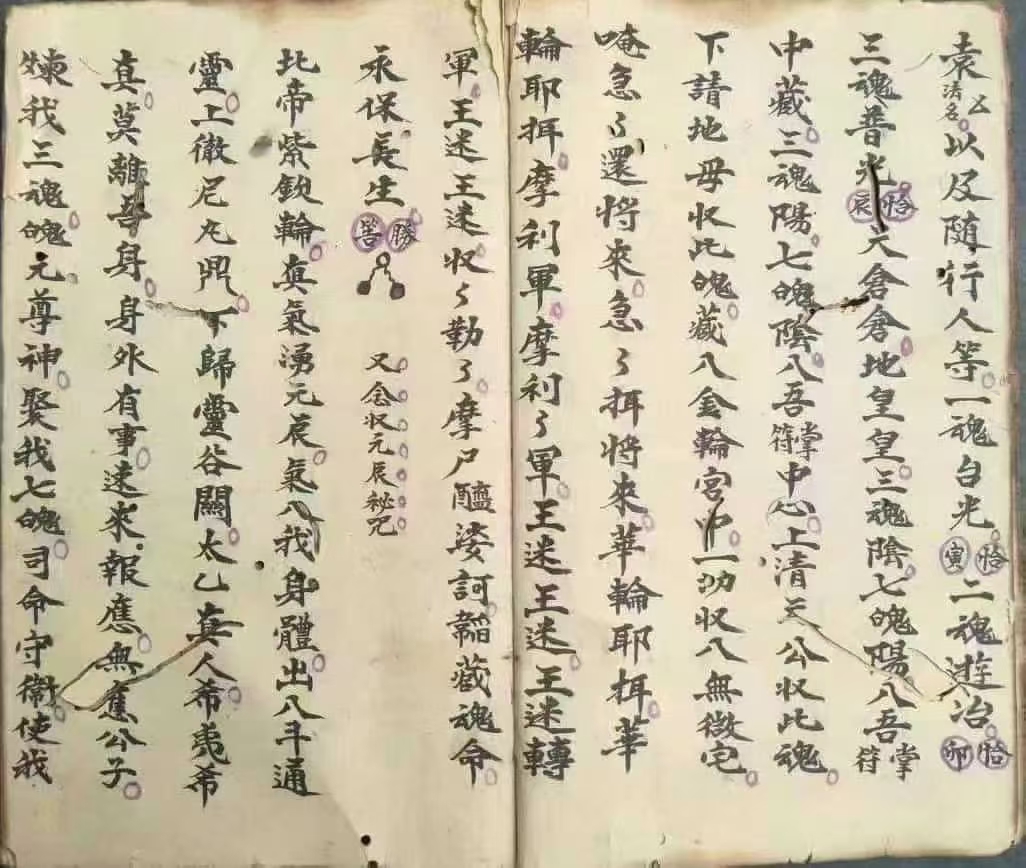 袁法名厶以及随行人等一魂台光恰寅二魂遊冶恰卯
三魂普光恰辰天倉倉地皇皇三魂陰七魄陽八吾掌符
中藏三魂陽七魄陰八吾掌符中心上清三公収此魂
下請地母収此魄藏八金輪宮中一切収八無微宅
唵急〻還将來急〻挕将來華輪耶挕華
輪耶挕摩利軍摩利〻軍王迷王迷王迷轉
軍王迷王迷収〻勒〻摩尸醯婆訶韜藏魂命
永保長生勝善
又念収元辰祕咒
北帝紫欽輪真氣湧元辰氣八我身體出八斗通
靈上徹尼丸鼎下歸靈谷關太乙真人希夷希
真莫離吾身身外有事速來報應無應公子
煉我三魂魄元尊神聚我七魄司命守衛使我